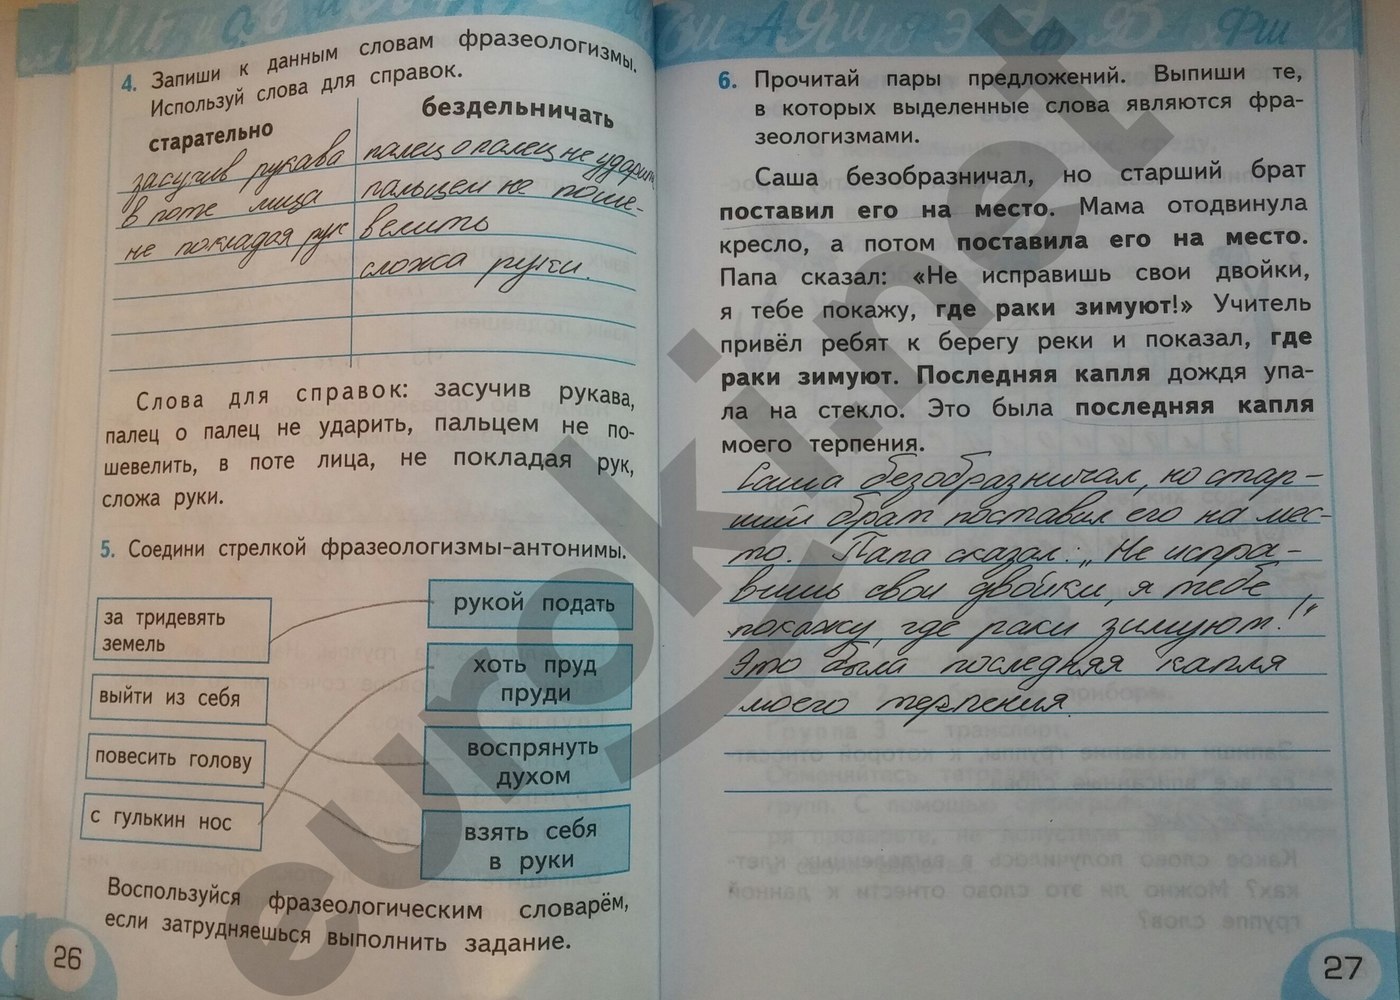 4. Запиши к данным словам фразеологизмы.
Используй слова для справок.
старательно
бездельничать
засучив рукава
в поте лица
не покладая рук
палец о палец не ударить
пальцем не поше-
велить
сложа руки.
Слова для справок: засучив рукава,
палец о палец не ударить, пальцем не по-
шевелить, в поте лица, не покладая рук,
сложа руки.
5. Соедини стрелкой фразеологизмы-антонимы.
за тридевять
земель
выйти из себя
повесить голову
с гулькин нос
рукой подать
хоть пруд
пруди
воспрянуть
духом
взять себя
в руки
Воспользуйся фразеологическим словарём,
если затрудняешься выполнить задание.
26
6. Прочитай пары предложений. Выпиши те,
в которых выделенные слова являются фра-
зеологизмами.
Саша безобразничал, но старший брат
поставил его на место. Мама отодвинула
кресло, а потом поставила его на место.
Папа сказал: «Не исправишь свои двойки,
я тебе покажу, где раки зимуют!» Учитель
привёл ребят к берегу реки и показал, где
раки зимуют. Последняя капля дождя упа-
ла на стекло. Это была последняя капля
моего терпения.
Саша безобразничал, но стар-
ший брат поставил его на мес-
то. Папа сказал: „Не испра-
вишь свои двойки, я тебе
покажу, где раки зимуют!"
Это была последняя капля
моего терпения.
27
euroki.net